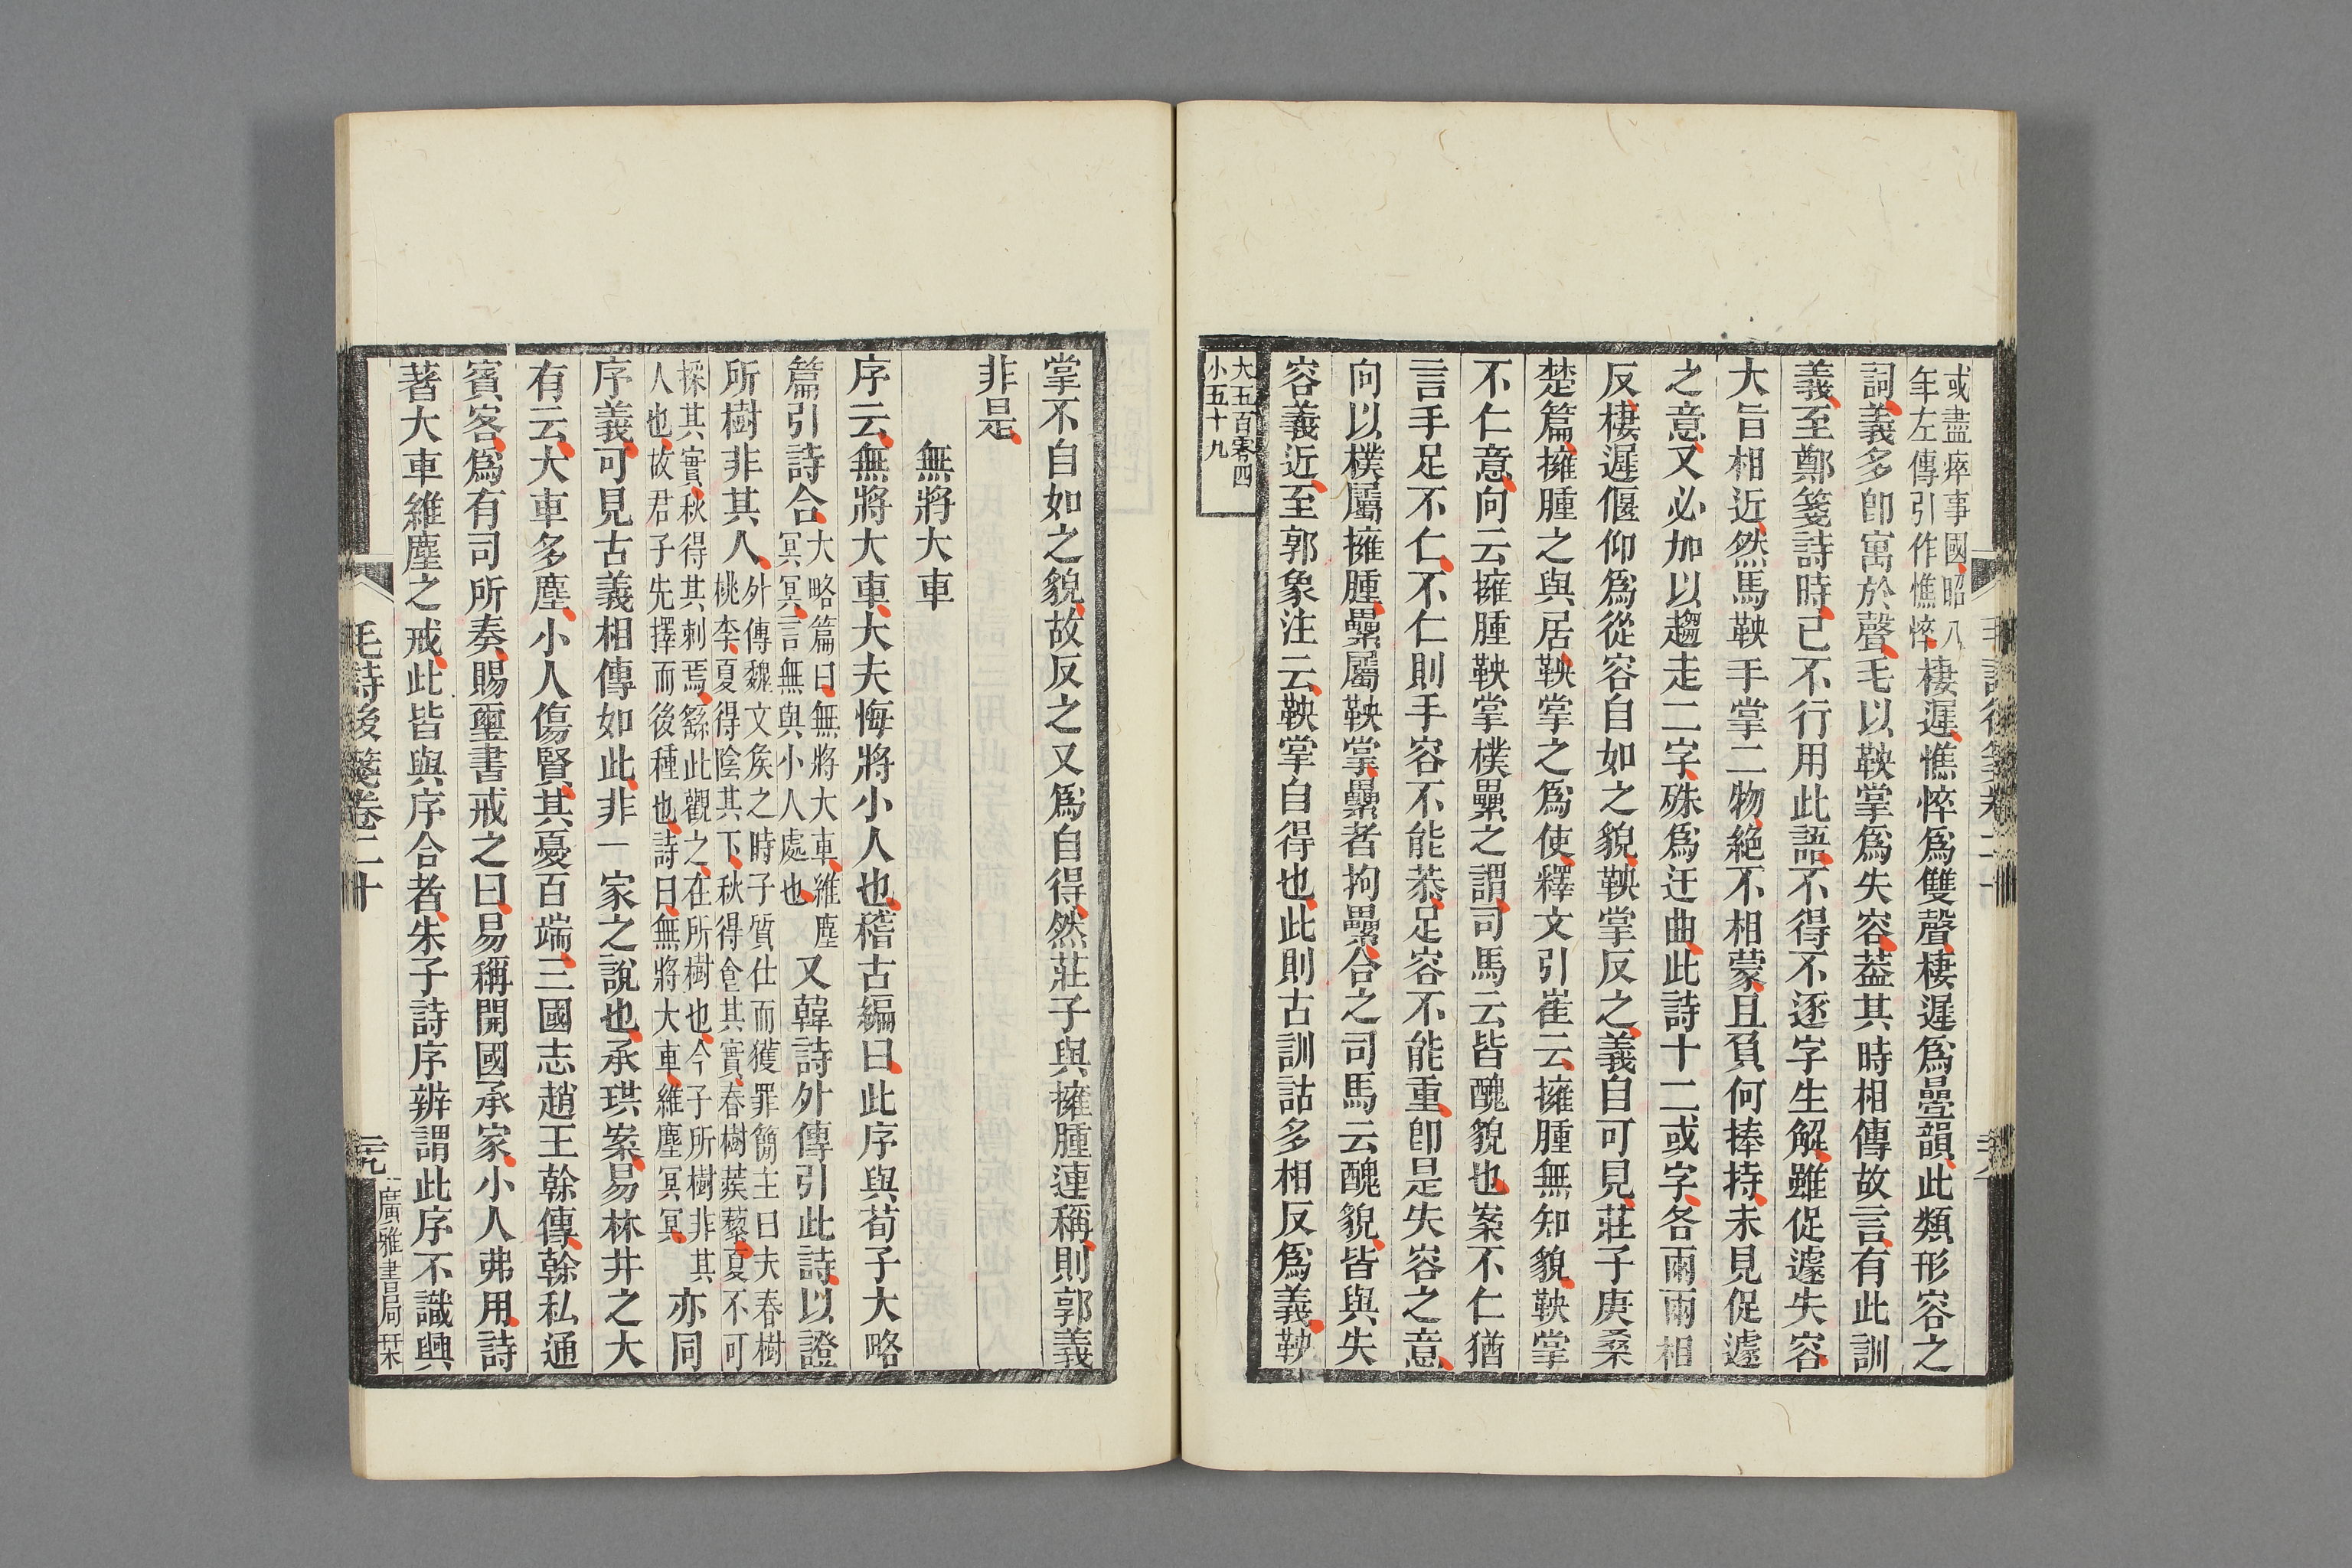 或盡瘁事國昭八
年左傳引作憔悴棲遲憔悴爲雙聲棲遲爲疊韻此類形容之
詞義多卽寓於聲毛以鞅掌爲失容葢其時相傳故言有此訓
義至鄭箋詩時已不行用此語不得不逐字生解雖促遽失容
大旨相近然馬鞅手掌二物絶不相蒙且負何捧持未見促遽
之意又必加以趨走二字殊爲迂曲此詩十二或字各兩兩相
反棲遲偃仰爲從容自如之貌鞅掌反之義自可見莊子庚桑
楚篇擁腫之與居鞅掌之爲使釋文引崔云擁腫無知貌鞅掌
不仁意向云擁腫鞅掌樸纍之謂司馬云皆醜貌也案不仁猶
言手足不仁不仁則手容不能恭足容不能重卽是失容之意
向以樸屬擁腫纍屬鞅掌纍者拘纍合之司馬云醜貌皆與失
容義近至郭象注云鞅掌自得也此則古訓詁多相反爲義鞅
大五百零四
小五十九
掌不自如之貌故反之又爲自得然莊子與擁腫連稱則郭義
非是
無將大車
序云無將大車大夫悔將小人也稽古編曰此序與荀子大略
篇引詩合大略篇曰無將大車維塵
冥冥言無與小人處也又韓詩外傳引此詩以證
所樹非其人外傳魏文矦之時子質仕而獲罪簡主曰夫春樹
桃李夏得陰其下秋得食其實春樹蒺藜夏不可
採其實秋得其刺焉繇此觀之在所樹也今子所樹非其
人也故君子先擇而後種也詩曰無將大車維塵冥冥亦同
序義可見古義相傳如此非一家之說也承珙案易林井之大
有云大車多塵小人傷賢其憂百端三國志趙王榦傳榦私通
賓客爲有司所奏賜璽書戒之曰易稱開國承家小人弗用詩
著大車維塵之戒此皆與序合者朱子詩序辨謂此序不識興
毛詩後箋卷二十
廣雅書局栞